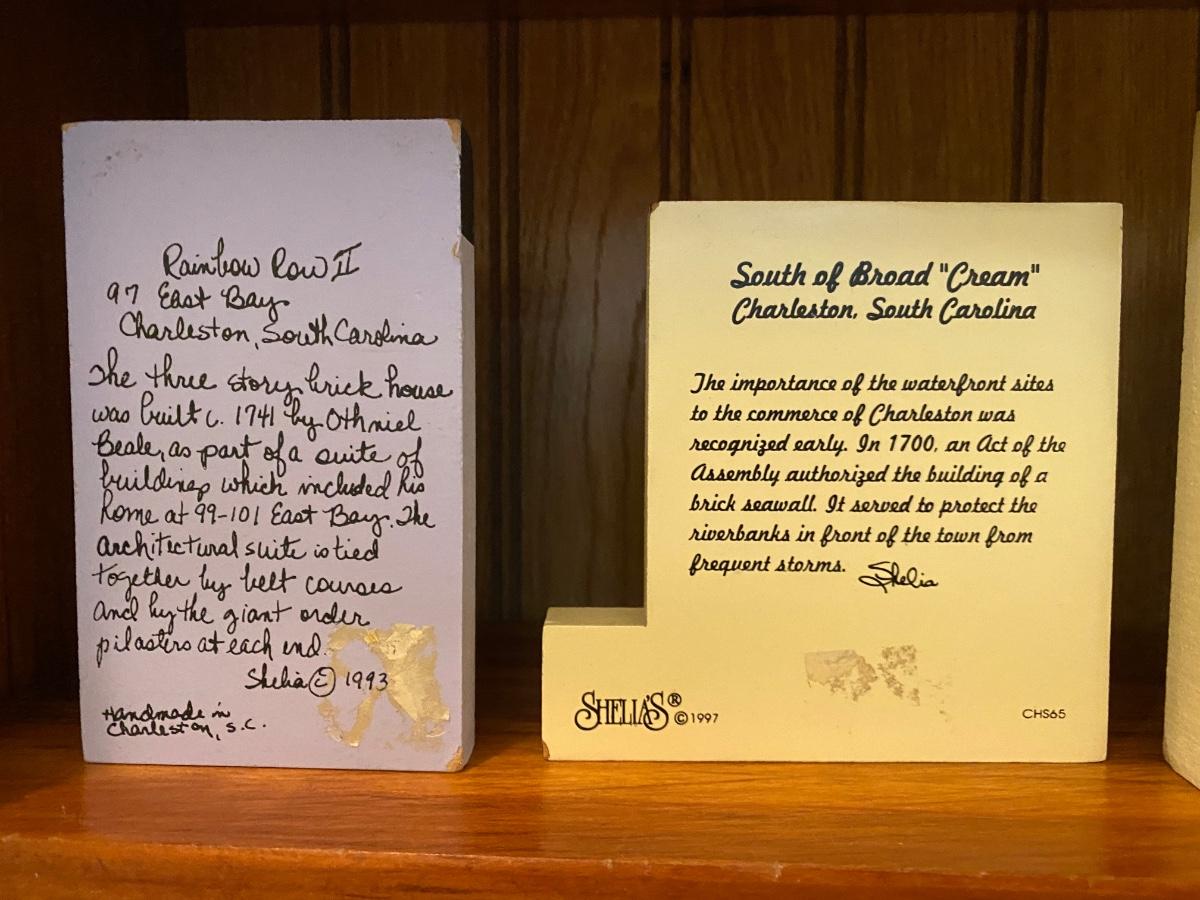 Rainbow Row II
97 East Bay
Charleston, South Carolina
The three story brick house
was built c. 1741 by Othniel
Beale, as part of a suite of
buildings which included his
home at 99-101 East Bay. The
architectural suite is tied
together by belt courses
and by the giant order
pilasters at each end.
Shelia © 1993
Handmade in
Charleston, S.C.
South of Broad "Cream"
Charleston, South Carolina
The importance of the waterfront sites
to the commerce of Charleston was
recognized early. In 1700, an Act of the
Assembly authorized the building of a
brick seawall. It served to protect the
riverbanks in front of the town from
frequent storms. Shelia
SHELIA'S® ©1997 CHS65